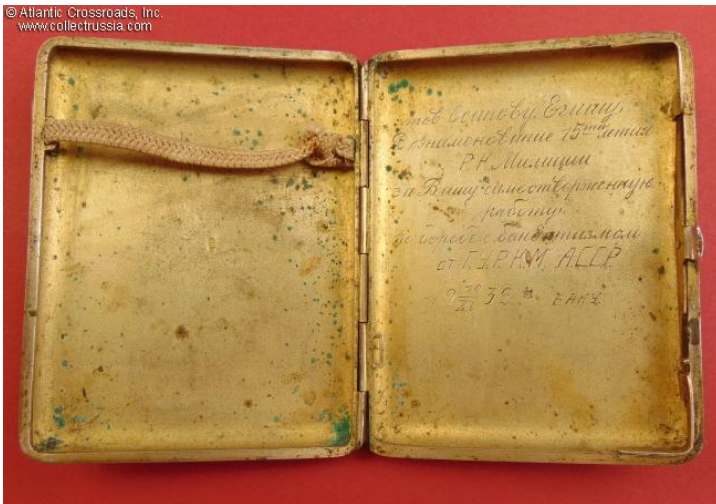 © Atlantic Crossroads, Inc.
www.collectrussia.com
тов Осипову Егишу
В ознименование 15ти летия
Р.К. Милиции
за Вашу самоотверженную
работу
по борьбе с бандитизмом
от Г.У.Р.К.М. АССР
БАКУ